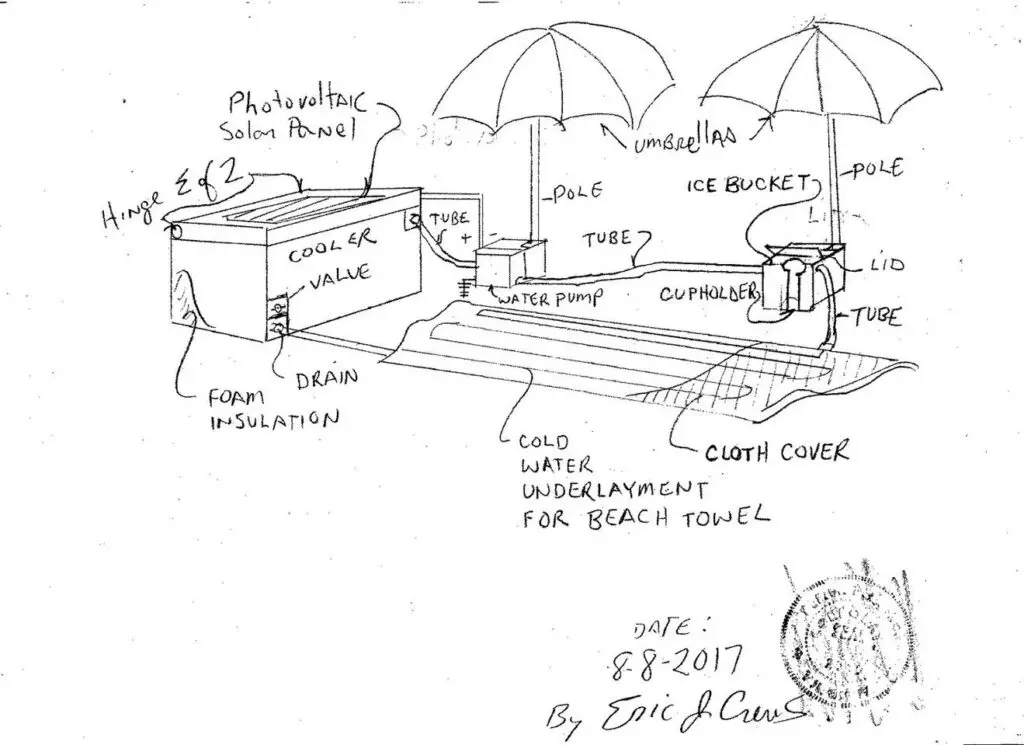 Photovoltaic
Solar Panel
Hinge 2 of 2
UMBRELLAS
POLE
ICE BUCKET
POLE
TUBE
+ -
COOLER
TUBE
LID
VALVE
WATER PUMP
CUPHOLDER
TUBE
DRAIN
FOAM
INSULATION
COLD
WATER
UNDERLAYMENT
FOR BEACH TOWEL
CLOTH COVER
DATE:
8-8-2017
By Eric J